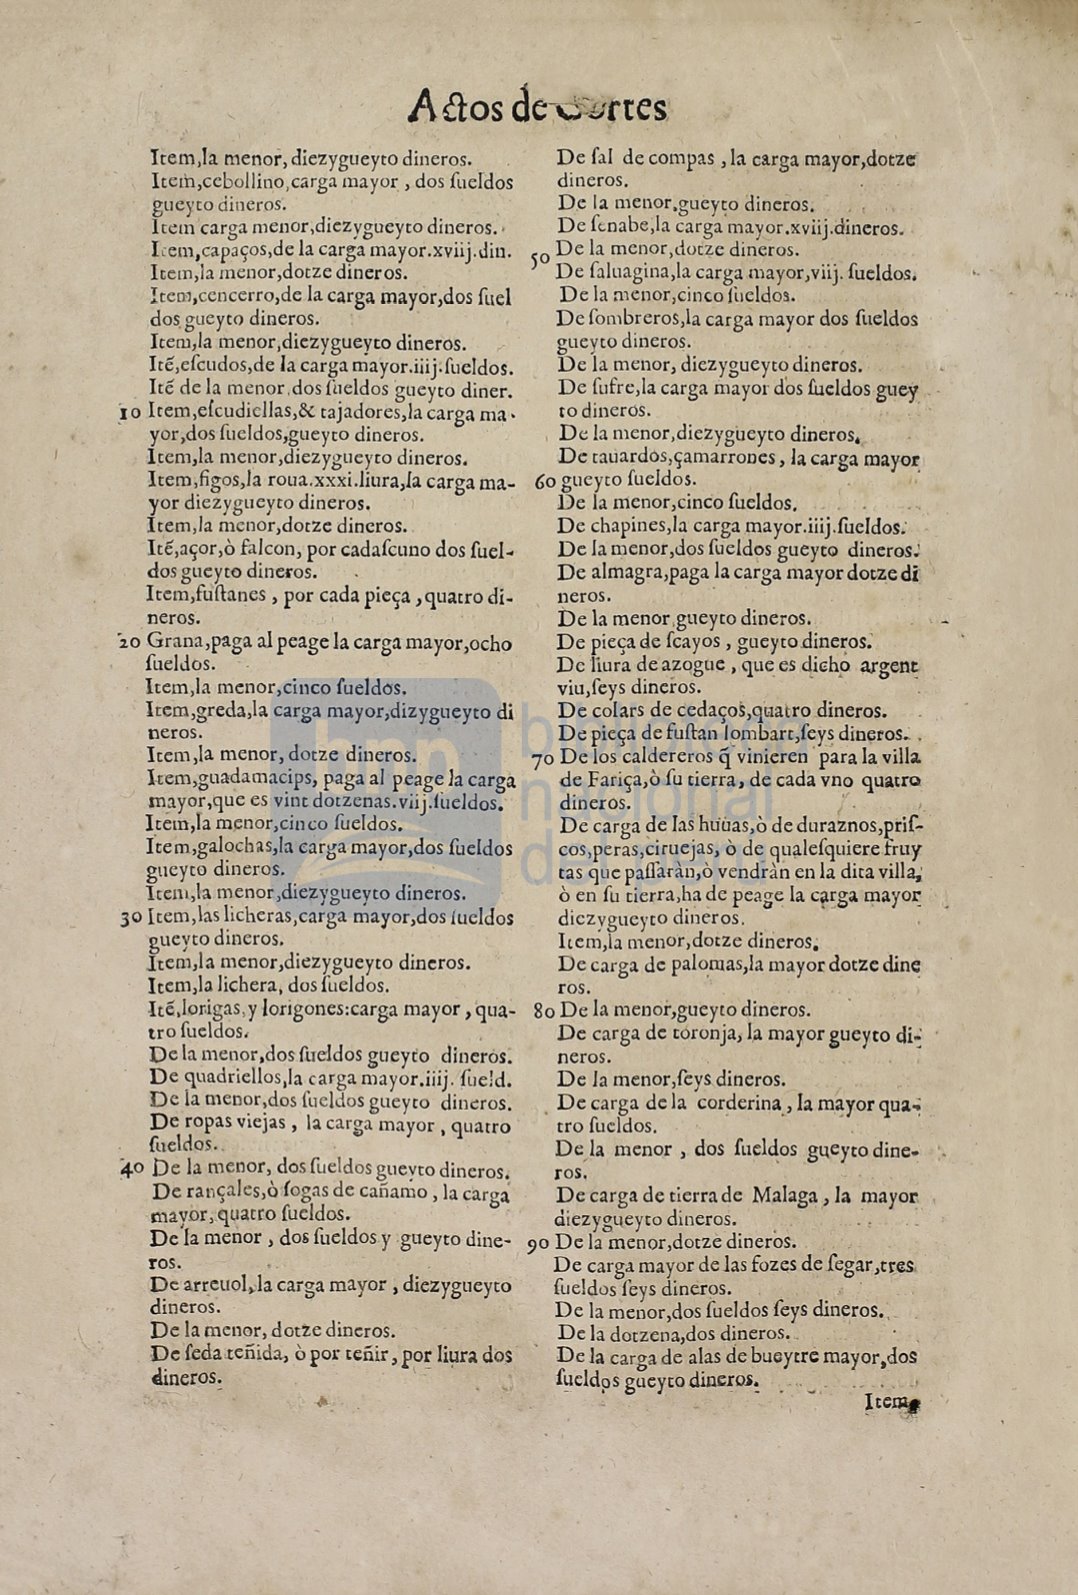 Actos de Cortes
Item,la menor, diezygueyto dineros.
Item,cebollino,carga mayor , dos ſueldos
gueyto dineros.
Item carga menor,diezygueyto dineros.
Item,capaços,de la carga mayor.xviij.din.
Item,la menor,dotze dineros.
Item,cencerro,de la carga mayor,dos ſuel
dos gueyto dineros.
Item,la menor,diezygueyto dineros.
Itẽ,eſcudos,de la carga mayor.iiij.ſueldos.
Itẽ de la menor dos ſueldos gueyto diner.
10 Item,eſcudiellas,& tajadores,la carga ma-
yor,dos ſueldos,gueyto dineros.
Item,la menor,diezygueyto dineros.
Item,figos,la roua.xxxi.liura,la carga ma-
yor diezygueyto dineros.
Item,la menor,dotze dineros.
Itẽ,açor,ò falcon, por cadaſcuno dos ſuel-
dos gueyto dineros.
Item,fuſtanes , por cada pieça ,quatro di-
neros.
20 Grana,paga al peage la carga mayor,ocho
ſueldos.
Item,la menor,cinco ſueldos.
Item,greda,la carga mayor,dizygueyto di
neros.
Item,la menor, dotze dineros.
Item,guadamacips, paga al peage la carga
mayor,que es vint dotzenas.viij.ſueldos.
Item,la menor,cinco ſueldos.
Item,galochas,la carga mayor,dos ſueldos
gueyto dineros.
Item,la menor,diezygueyto dineros.
30 Item,las licheras,carga mayor,dos ſueldos
gueyto dineros.
Item,la menor,diezygueyto dineros.
Item,la lichera, dos ſueldos.
Itẽ,lorigas,y lorigones:carga mayor , qua-
tro ſueldos.
De la menor,dos ſueldos gueyto dineros.
De quadriellos,la carga mayor.iiij. ſueld.
De la menor,dos ſueldos gueyto dineros.
De ropas viejas , la carga mayor , quatro
ſueldos.
40 De la menor, dos ſueldos gueyto dineros.
De rançales,ò ſogas de cañamo , la carga
mayor, quatro ſueldos.
De la menor , dos ſueldos y gueyto dine-
ros.
De arreuol,la carga mayor , diezygueyto
dineros.
De la menor, dotze dineros.
De ſeda teñida, ò por teñir, por liura dos
dineros.
De ſal de compas , la carga mayor,dotze
dineros.
De la menor,gueyto dineros.
De ſenabe,la carga mayor.xviij.dineros.
50 De la menor,dotze dineros.
De ſaluagina,la carga mayor,viij. ſueldos.
De la menor,cinco ſueldos.
De ſombreros,la carga mayor dos ſueldos
gueyto dineros.
De la menor, diezygueyto dineros.
De ſufre,la carga mayor dos ſueldos guey
to dineros.
De la menor,diezygueyto dineros.
De tauardos,çamarrones , la carga mayor
60 gueyto ſueldos.
De la menor,cinco ſueldos.
De chapines,la carga mayor.iiij.ſueldos.
De la menor,dos ſueldos gueyto dineros.
De almagra,paga la carga mayor dotze di
neros.
De la menor gueyto dineros.
De pieça de ſcayos , gueyto dineros.
De liura de azogue , que es dicho argent
viu,ſeys dineros.
De colars de cedaços,quatro dineros.
De pieça de fuſtan lombart,ſeys dineros.
70 De los caldereros q̃ vinieren para la villa
de Fariça,ò ſu tierra, de cada vno quatro
dineros.
De carga de las huuas,ò de duraznos,priſ-
cos,peras,ciruejas, ò de qualeſquiere fruy
tas que paſſaràn,ò vendràn en la dita villa,
ò en ſu tierra,ha de peage la carga mayor
diezygueyto dineros.
Item,la menor,dotze dineros.
De carga de palomas,la mayor dotze dine
ros.
80 De la menor,gueyto dineros.
De carga de toronja, la mayor gueyto di-
neros.
De la menor,ſeys dineros.
De carga de la corderina , la mayor qua-
tro ſueldos.
De la menor , dos ſueldos gueyto dine-
ros.
De carga de tierra de Malaga , la mayor
diezygueyto dineros.
90 De la menor,dotze dineros.
De carga mayor de las fozes de ſegar,tres
ſueldos ſeys dineros.
De la menor,dos ſueldos ſeys dineros.
De la dotzena,dos dineros.
De la carga de alas de bueytre mayor,dos
ſueldos gueyto dineros.
Item,
bnp
biblioteca
nacional